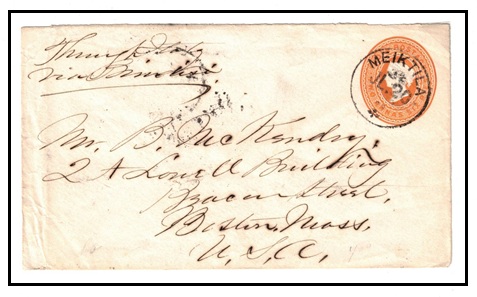 Through Italy
via Brindisi
MEIKTILA
Mr. B. McKendry,
2 A Lowell Building
Beacon Street,
Boston, Mass.
U.S.A.